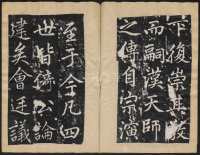 復崇其教
而嗣漢天師
之傳自宗演
至于今凡四
世皆論
建矣會廷議